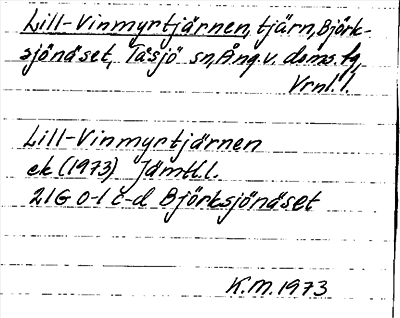 Lill-Vinmyrtjärnen, tjärn, Björk-
sjönäset, Tåsjö sn, Ång. v. doms. fg,
Vrnl. l.
Lill-Vinmyrtjärnen
ek (1973) Jämtl. l.
21G 0-1 c-d Björksjönäset
K.M. 1973